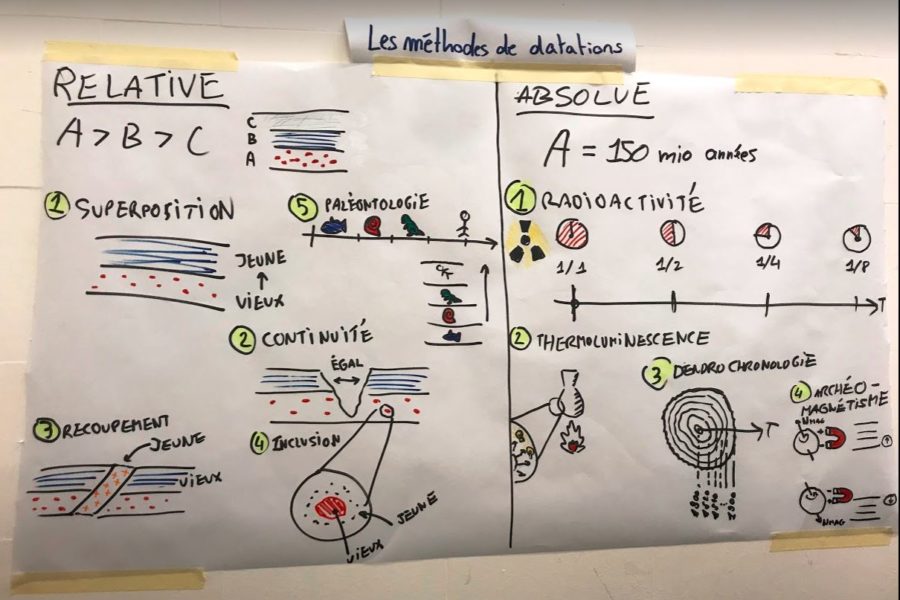 Les méthodes de datations
RELATIVE
A > B > C
C
B
A
1 SUPERPOSITION
JEUNE
VIEUX
5 PALÉONTOLOGIE
2 CONTINUITÉ
ÉGAL
3 RECOUPEMENT
JEUNE
VIEUX
4 INCLUSION
JEUNE
VIEUX
ABSOLUE
A = 150 mio années
1 RADIOACTIVITÉ
1/1
1/2
1/4
1/8
T
2 THERMOLUMINESCENCE
3 DENDROCHRONOLOGIE
T
4 ARCHÉO-
MAGNÉTISME
NMAG
NMAG